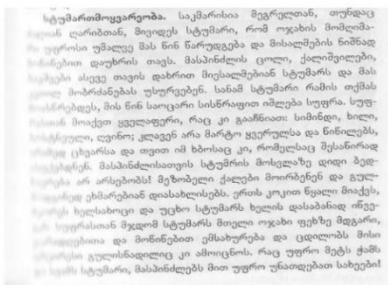 სტუმართმოყვარეობა. საკმარისია მეგრელთან, თუნდაც
ღარიბთან, მივიდეს სტუმარი, რომ ოჯახის მომღიმა-
უფროსი უმალვე მას წინ წარუდგება და მისალმების ნიშნად
დაუხრის თავს. მასპინძლის ცოლი, ქალიშვილები,
ასევე თავის დახრით მიესალმებიან სტუმარს და მას
მობრძანებას უსურვებენ. სანამ სტუმარი რამის თქმას
მის წინ საოცარი სისწრაფით იშლება სუფრა. სუფ-
მოაქვთ ყველაფერი, რაც კი გააჩნიათ: სიმინდი, ხილი,
ღვინო; კლავენ არა მარტო ყვერულსა და წიწილებს,
ცხვარსა და თვით იმ ხბოსაც კი, რომელსაც შესაწირად
მასპინძლისათვის სტუმრის მოსვლაზე დიდი ბედ-
არ არსებობს! მეზობელი ქალები მოირბენენ და გულ-
ეხმარებიან დიასახლისებს. ერთს კოკით წყალი მიაქვს,
ხელსახოცი და უცხო სტუმარს ხელის დასაბანად იწვე-
სუფრასთან მჯდომ სტუმარს მთელი ოჯახი ფეხზე მდგარი,
და მოწიწებით ემსახურება და ცდილობს მისი
გულისნადილიც კი ამოიცნოს. რაც უფრო მეტს ჭამს
სტუმარი, მასპინძლებს მით უფრო უნათდებათ სახეები!